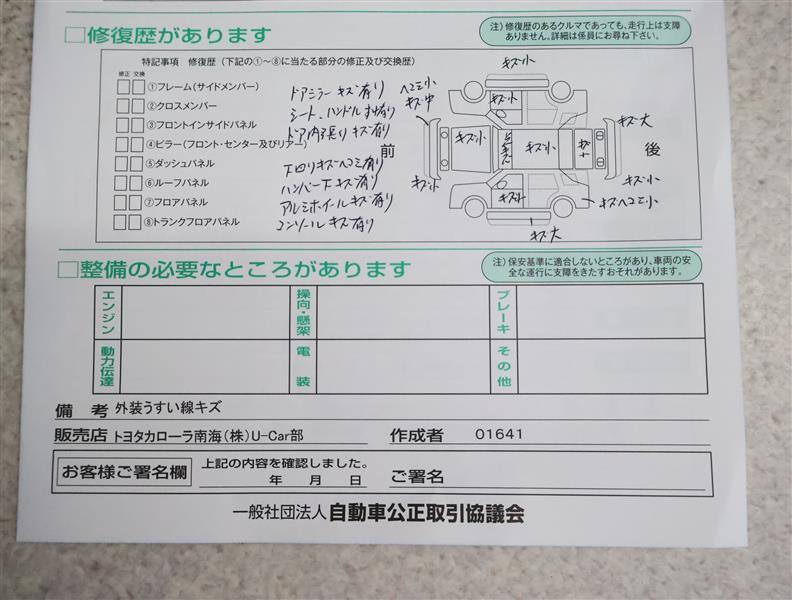 □修復歴があります
注）修復歴のあるクルマであっても、走行上は支障
ありません。詳細は係員にお尋ね下さい。
特記事項 修復歴（下記の①〜⑧に当たる部分の修正及び交換歴）
修正 交換
①フレーム(サイドメンバー)
②クロスメンバー
③フロントインサイドパネル
④ピラー(フロント・センター及びリアー)
⑤ダッシュパネル
⑥ルーフパネル
⑦フロアパネル
⑧トランクフロアパネル
ドアミラーキズ有り
シート、ハンドルすれ有り
ドア内張りキズ有り
下回りキズヘコミ有り
バンパー下キズ有り
アルミホイールキズ有り
コンソールキズ有り
前
後
キズ小
ヘコミ小
キズ中
キズ小
キズ大
キズ小
キズ小
キズ小
キズ小
キズ小
キズヘコミ小
キズ大
□整備の必要なところがあります
注）保安基準に適合しないところがあり、車両の安
全な運行に支障をきたすおそれがあります。
エンジン
操向・懸架
ブレーキ
動力伝達
電装
その他
備考 外装うすい線キズ
販売店 トヨタカローラ南海（株）U-Car部
作成者 01641
お客様ご署名欄
上記の内容を確認しました。
年 月 日
ご署名
一般社団法人 自動車公正取引協議会